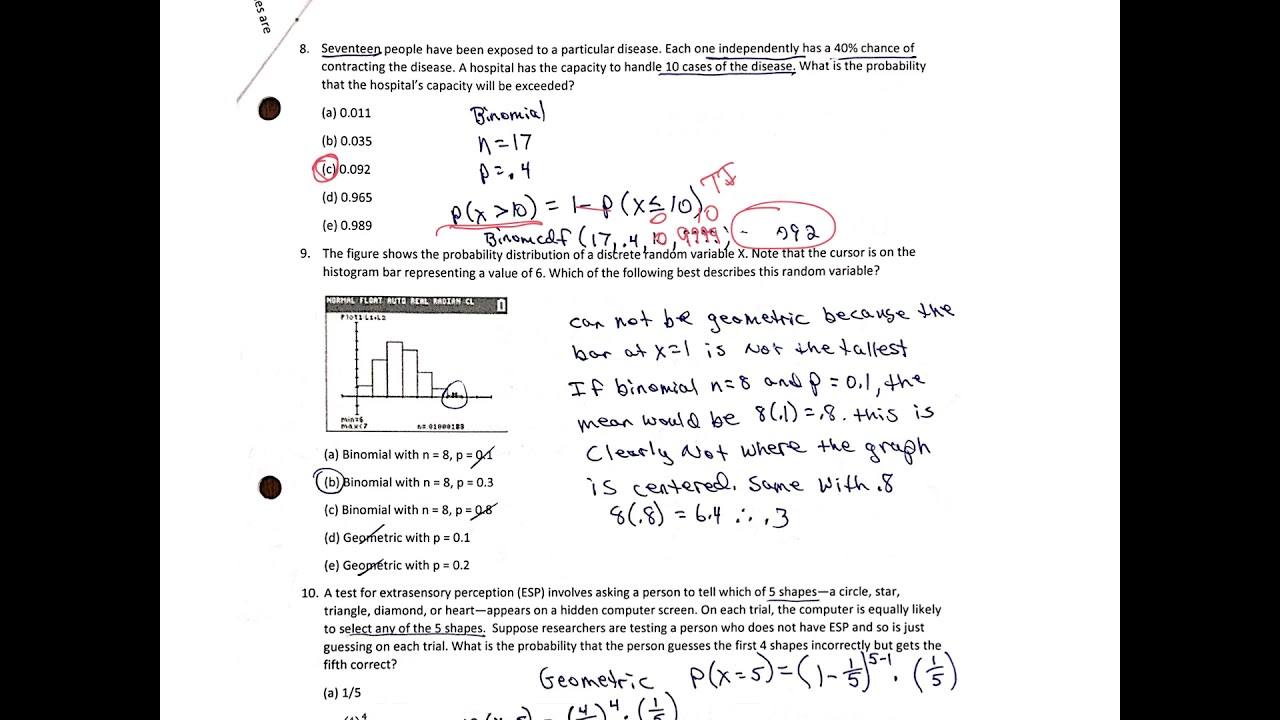 es are
8. Seventeen people have been exposed to a particular disease. Each one independently has a 40% chance of
contracting the disease. A hospital has the capacity to handle 10 cases of the disease. What is the probability
that the hospital's capacity will be exceeded?
(a) 0.011
Binomial
(b) 0.035
n=17
(c) 0.092
p=.4
TI
(d) 0.965
P(x>10) = 1-P(x≤10)
0 10
(e) 0.989
Binomcdf (17, .4, 10, 9999) = .092
9. The figure shows the probability distribution of a discrete random variable X. Note that the cursor is on the
histogram bar representing a value of 6. Which of the following best describes this random variable?
NORMAL FLOAT AUTO REAL RADIAN CL
Plot1:L1,L2
min=6
max<7 n=.01000188
can not be geometric because the
bar at x=1 is not the tallest
If binomial n=8 and p=0.1, the
mean would be 8(.1)=.8. this is
Clearly Not where the graph
is centered. Same with .8
8(.8) = 6.4 ∴ .3
(a) Binomial with n = 8, p = 0.1
(b) Binomial with n = 8, p = 0.3
(c) Binomial with n = 8, p = 0.8
(d) Geometric with p = 0.1
(e) Geometric with p = 0.2
10. A test for extrasensory perception (ESP) involves asking a person to tell which of 5 shapes—a circle, star,
triangle, diamond, or heart—appears on a hidden computer screen. On each trial, the computer is equally likely
to select any of the 5 shapes. Suppose researchers are testing a person who does not have ESP and so is just
guessing on each trial. What is the probability that the person guesses the first 4 shapes incorrectly but gets the
fifth correct?
Geometric P(x=5)=(1-1/5)^5-1 · (1/5)
(a) 1/5